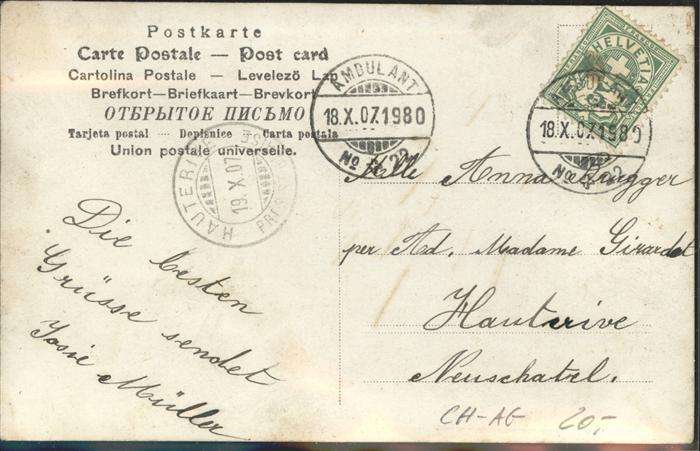 Postkarte
Carte Postale — Post card
Cartolina Postale — Levelező Lap
Brefkort-Briefkaart-Brevkort
ОТКРЫТОЕ ПИСЬМО
Tarjeta postal — Dopisnice — Carta postala
Union postale universelle.
AMBULANT
18.X.07.1980
No
HELVETIA
18.X.07.1980
No
HAUTERI
19.X.07
Mlle Anna
per Ad. Madame Girardet
Hauterive
Neuschatel.
Die besten
Grüsse sendet
Josie Müller
CH-AG 20.-